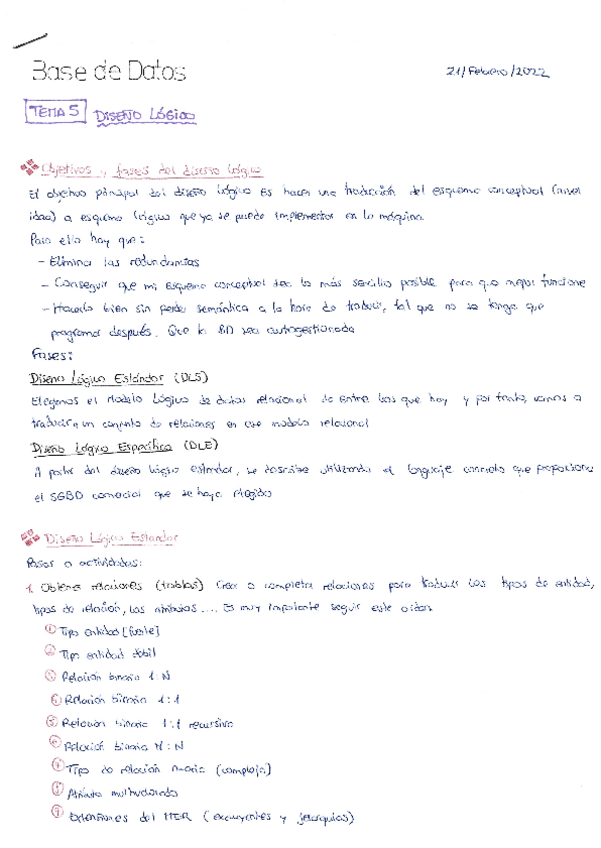 Base de Datos
21/Febrero/2022
TEMA 5 DISEÑO LÓGICO
Objetivos y fases del diseño lógico
El objetivo principal del diseño lógico es hacer una traducción del esquema conceptual (
idea) a esquema lógico que ya se puede implementar en la máquina.
Para ello hay que:
- Eliminar las redundancias
- Conseguir que mi esquema conceptual sea lo más sencillo posible para que mejor funcione
- Hacerlo bien sin perder semántica a la hora de traducir, tal que no se tenga que
programar después. Que la BD sea autogestionada
Fases:
Diseño Lógico Estándar (DLS)
Elegimos el Modelo Lógico de datos relacional de entre los que hay y por tanto, vamos a
traducir a un conjunto de relaciones en ese modelo relacional
Diseño Lógico Específico (DLE)
A partir del diseño lógico estándar, se describe utilizando el lenguaje concreto que proporciona
el SGBD comercial que se haya elegido
Diseño Lógico Estándar
Pasos o actividades:
1. Obtener relaciones (tablas) Crear o completar relaciones para traducir los tipos de entidad,
tipos de relación, los atributos.... Es muy importante seguir este orden.
① Tipo entidad [fuerte]
② Tipo entidad débil
③ Relación binaria 1:N
④ Relación binaria 1:1
⑤ Relación binaria 1:1 recursiva
⑥ Relación binaria N:N
⑦ Tipo de relación n-aria (compleja)
⑧ Atributo multivalorado
⑨ Extensiones del MER (excluyentes y jerarquías)